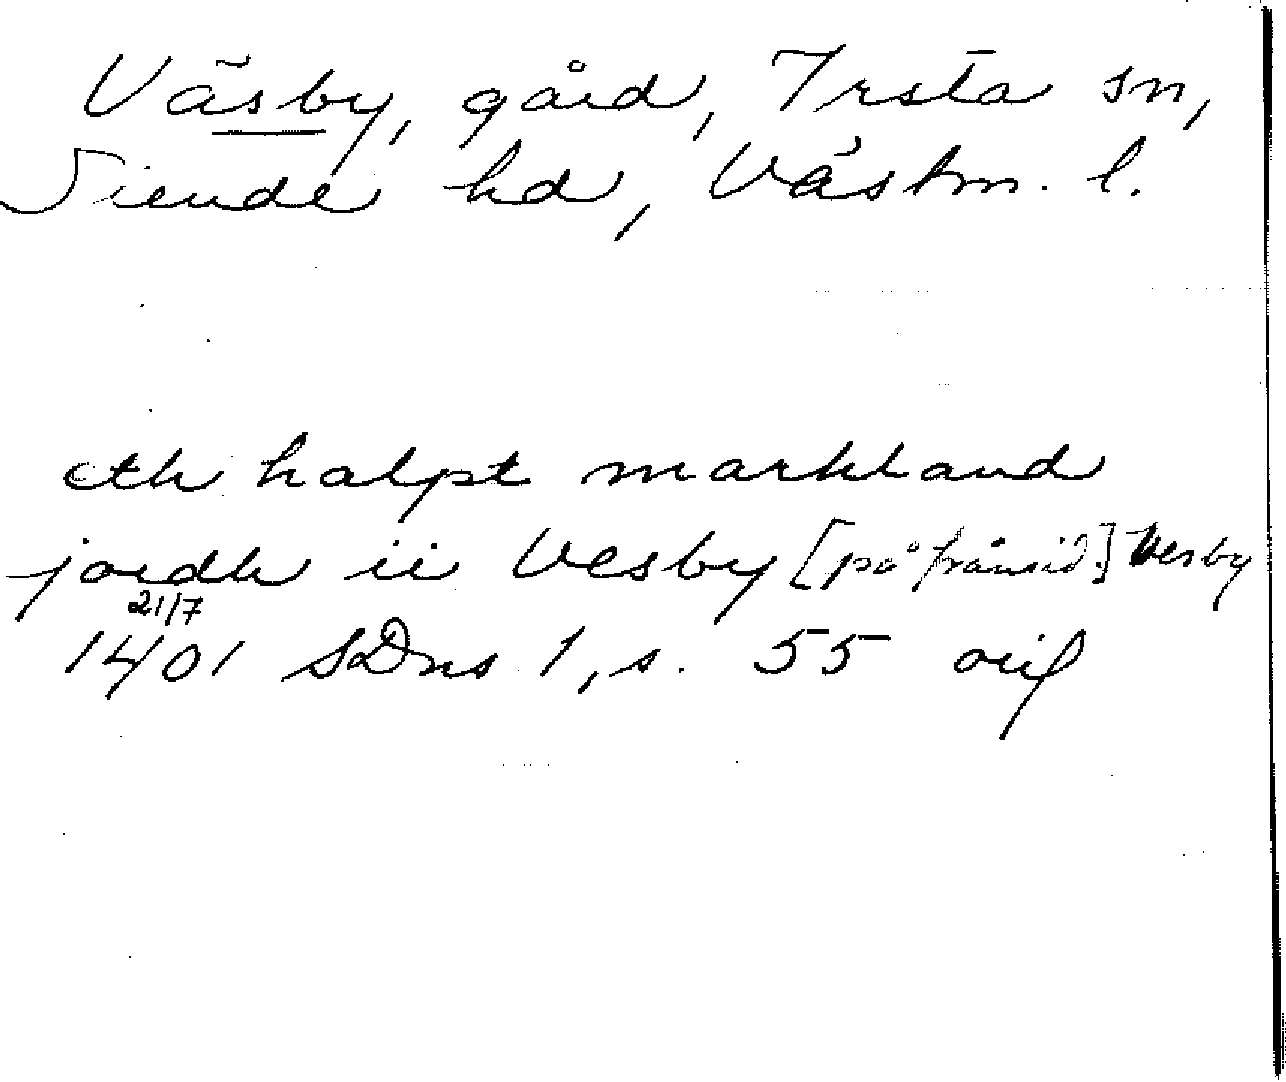 Väsby, gård, Irsta sn,
Siende hd, Västm. l.
eth halpt markland
jordh ii Vesby [på frånsid.] Vesby
21/7
1401 SDns 1, s. 55 orig